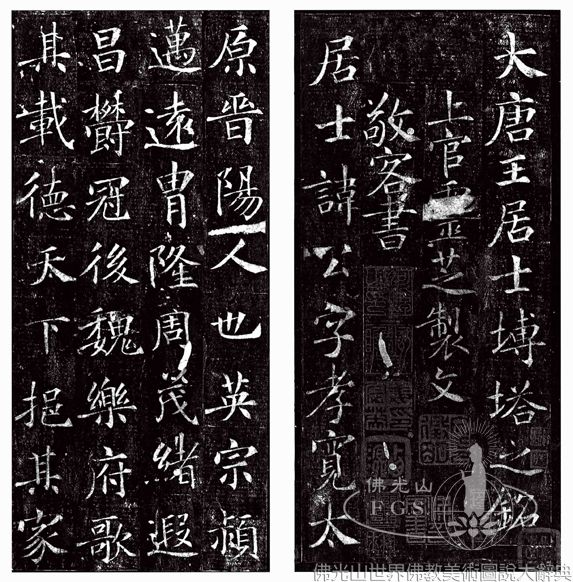 大唐王居士塼塔之銘
上官靈芝製文
敬客書
居士諱公字孝寬太
原晉陽人也英宗穎
邁遠冑隆周茂緒遐
昌欝冠後魏樂府歌
其載德天下挹其家
佛光山
FGS
佛光山世界佛教美術圖說大辭典